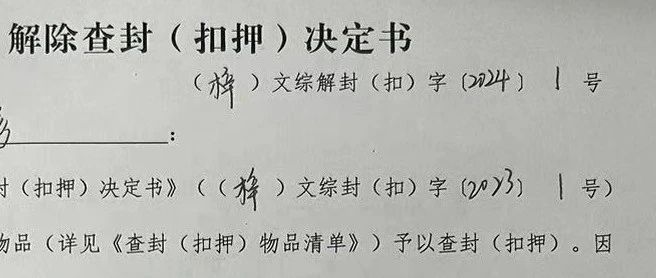 解除查封（扣押）决定书
（梓）文综解封（扣）字〔2024〕 1 号
：
封（扣押）决定书》（（梓）文综封（扣）字〔2023〕 1 号）
物品（详见《查封（扣押）物品清单》）予以查封（扣押）。因